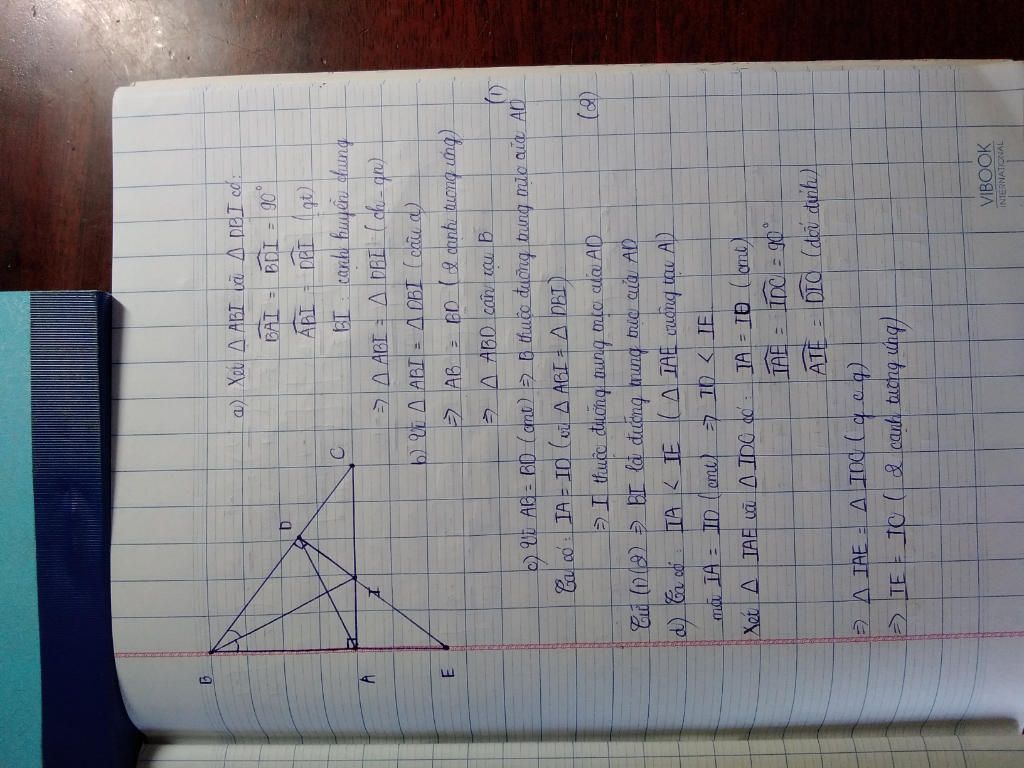 B
D
C
A
I
E
a) Xét Δ ABI và Δ DBI có:
BAI = BDI = 90°
ABI = DBI (gt)
BI : cạnh huyền chung
⇒ Δ ABI = Δ DBI (ch - gn)
b) Vì Δ ABI = Δ DBI (câu a)
⇒ AB = BD (2 cạnh tương ứng)
⇒ Δ ABD cân tại B
c) Vì AB = BD (cmt) ⇒ B thuộc đường trung trực của AD (1)
Ta có: IA = ID (vì Δ ABI = Δ DBI)
⇒ I thuộc đường trung trực của AD (2)
Từ (1) (2) ⇒ BI là đường trung trực của AD
d) Ta có: IA < IE (Δ IAE vuông tại A)
mà IA = ID (cmt) ⇒ ID < IE
Xét Δ IAE và Δ IDC có: IA = ID (cmt)
IAE = IDC = 90°
AIE = DIC (đối đỉnh)
⇒ Δ IAE = Δ IDC (g.c.g)
⇒ IE = IC (2 cạnh tương ứng)
VIBOOK
INTERNATIONAL